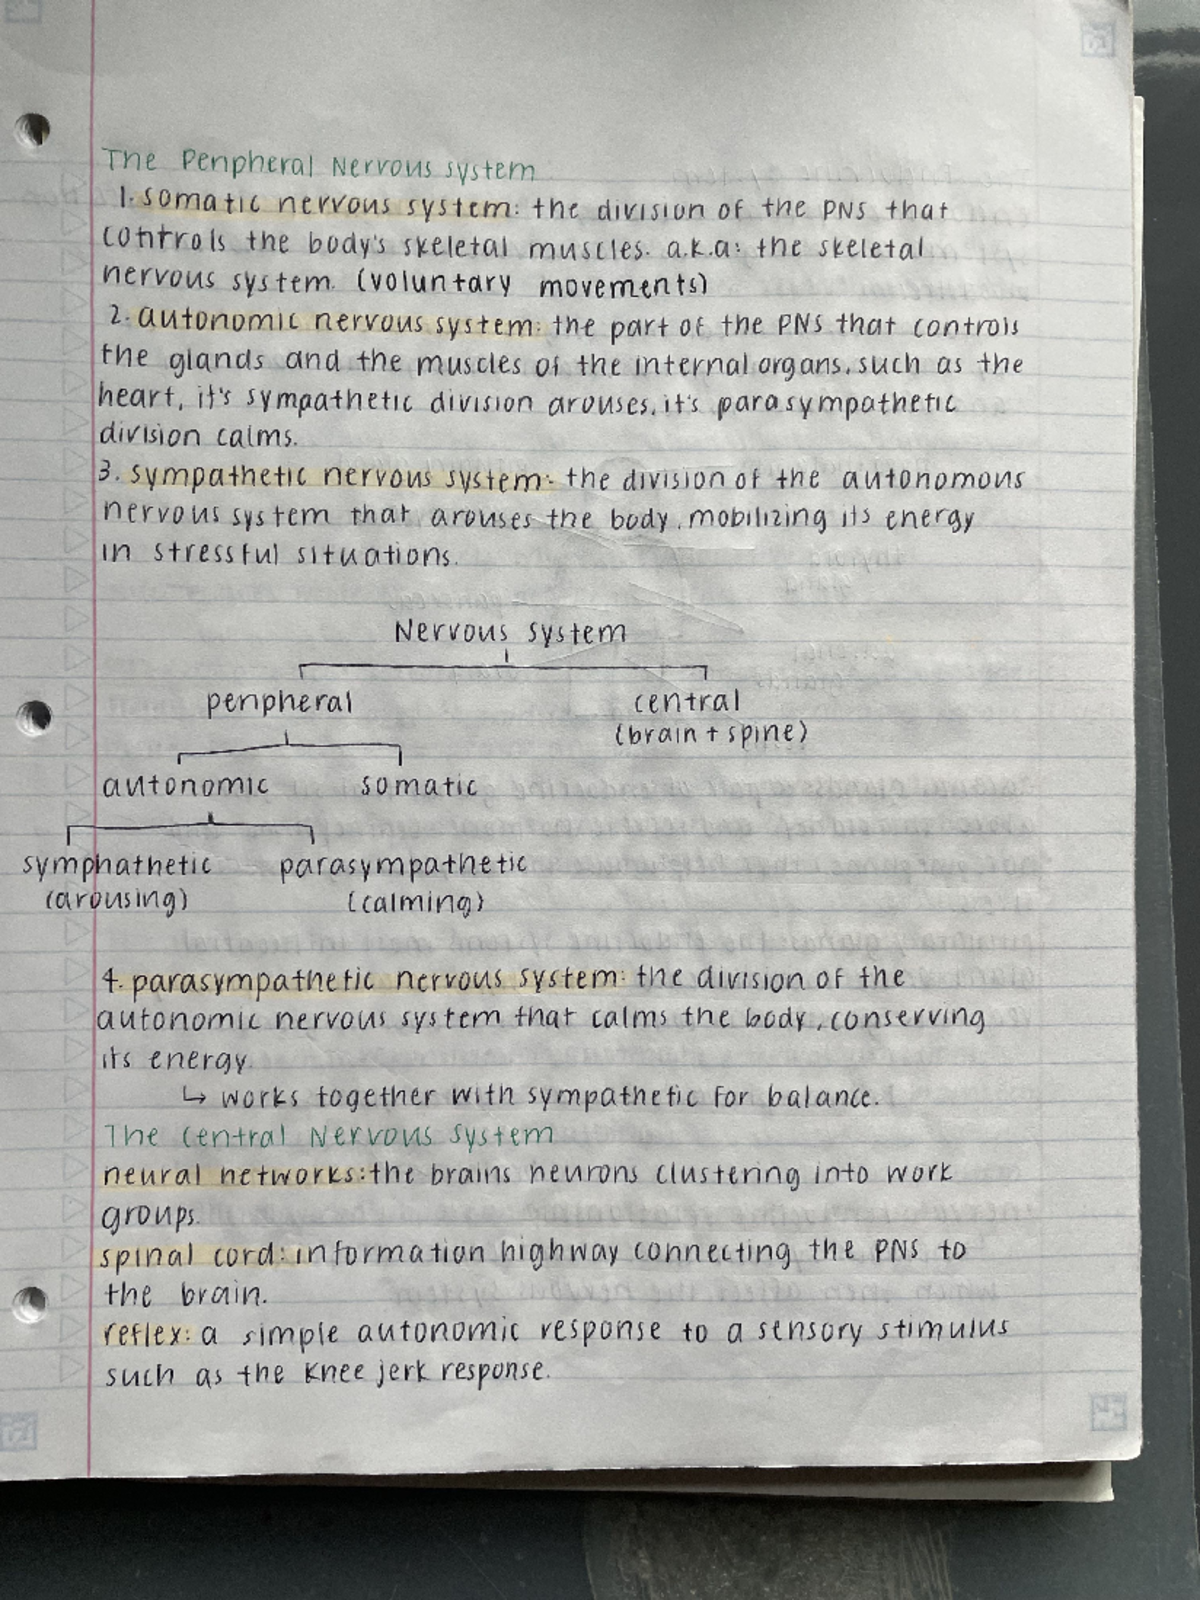 The Peripheral Nervous system
1. somatic nervous system: the division of the PNS that
controls the body's skeletal muscles. a.k.a: the skeletal
nervous system. (voluntary movements)
2. autonomic nervous system: the part of the PNS that controls
the glands and the muscles of the internal organs, such as the
heart, it's sympathetic division arouses, it's parasympathetic
division calms.
3. sympathetic nervous system: the division of the autonomous
nervous system that arouses the body, mobilizing its energy
in stressful situations.
Nervous system
peripheral central
(brain + spine)
autonomic somatic
symphathetic parasympathetic
(arousing) (calming)
4. parasympathetic nervous system: the division of the
autonomic nervous system that calms the body, conserving
its energy.
↳ works together with sympathetic for balance.
The Central Nervous System
neural networks: the brains neurons clustering into work
groups.
spinal cord: information highway connecting the PNS to
the brain.
reflex: a simple autonomic response to a sensory stimulus
such as the knee jerk response.